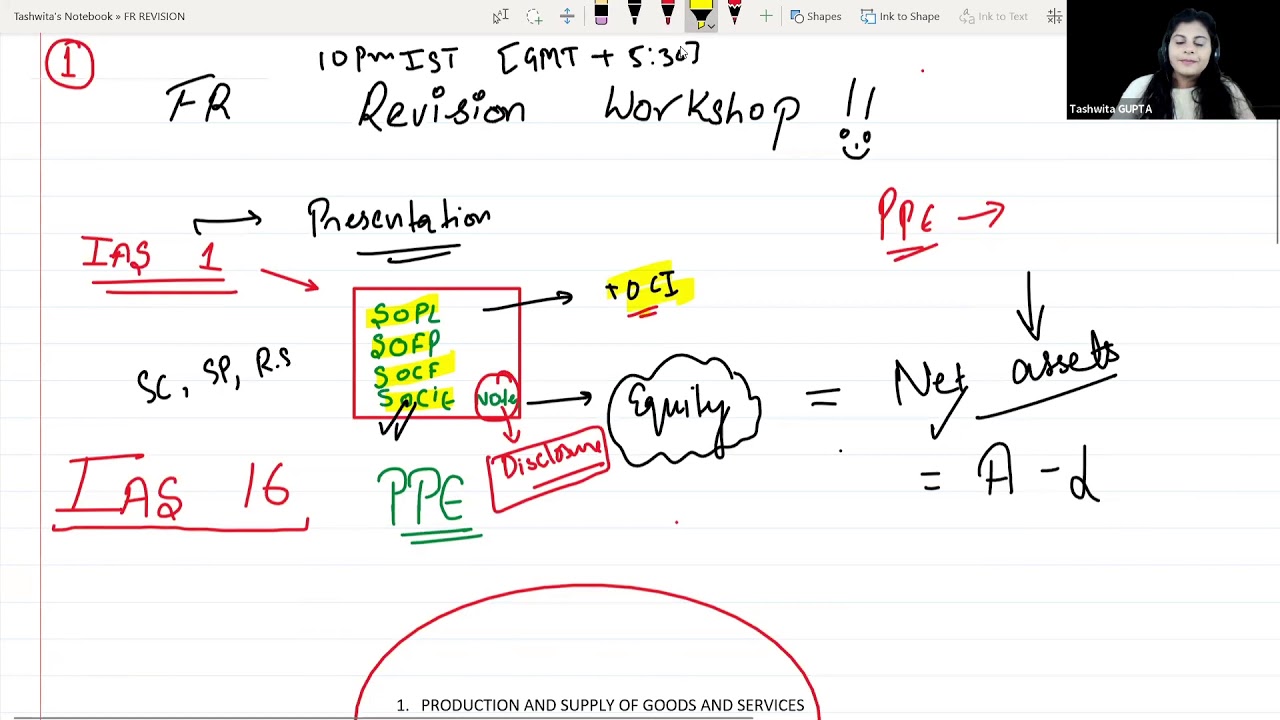 Tashwita's Notebook » FR REVISION
Shapes
Ink to Shape
Ink to Text
Tashwita GUPTA
1
10pm IST [GMT + 5:30]
FR Revision Workshop !!
IAS 1
Presentation
PPE
SOPL
SOFP
SOCF
SOCIE
Note
+ OCI
SC, SP, R.S
Equity = Net assets
= A - L
Disclosure
IAS 16
PPE
1. PRODUCTION AND SUPPLY OF GOODS AND SERVICES